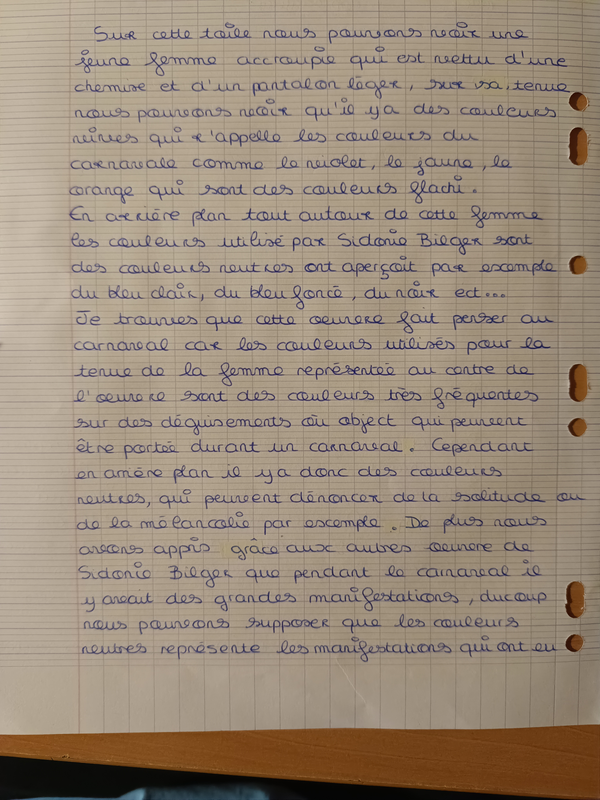 Sur cette toile nous pouvons voir une
jeune femme accroupie qui est vettu d'une
chemise et d'un pantalon léger, sur sa, tenue
nous pouvons voir qu'il y a des couleurs
vivres qui s'appelle les couleurs du
carnavale comme le violet, le jaune, le
orange qui sont des couleurs flachi.
En arrière plan tout autour de cette femme
les couleurs utilisé par Sidonie Bilger sont
des couleurs neutres ont aperçoit par exemple
du bleu clair, du bleu foncé, du noir ect...
Je trouves que cette oeuvre fait penser au
carnaval car les couleurs utilisés pour la
tenue de la femme représentée au centre de
l'oeuvre sont des couleurs très fréquentes
sur des déguisements où object qui peuvent
être portée durant un carnaval. Cependant
en arrière plan il y a donc des couleurs
neutres, qui peuvent dénoncer de la solitude ou
de la mélancolie par exemple. De plus nous
avons appris grâce aux autres oeuvre de
Sidonie Bilger que pendant le carnaval il
y avait des grandes manifestations, ducoup
nous pouvons supposer que les couleurs
neutres représente les manifestations qui ont eu